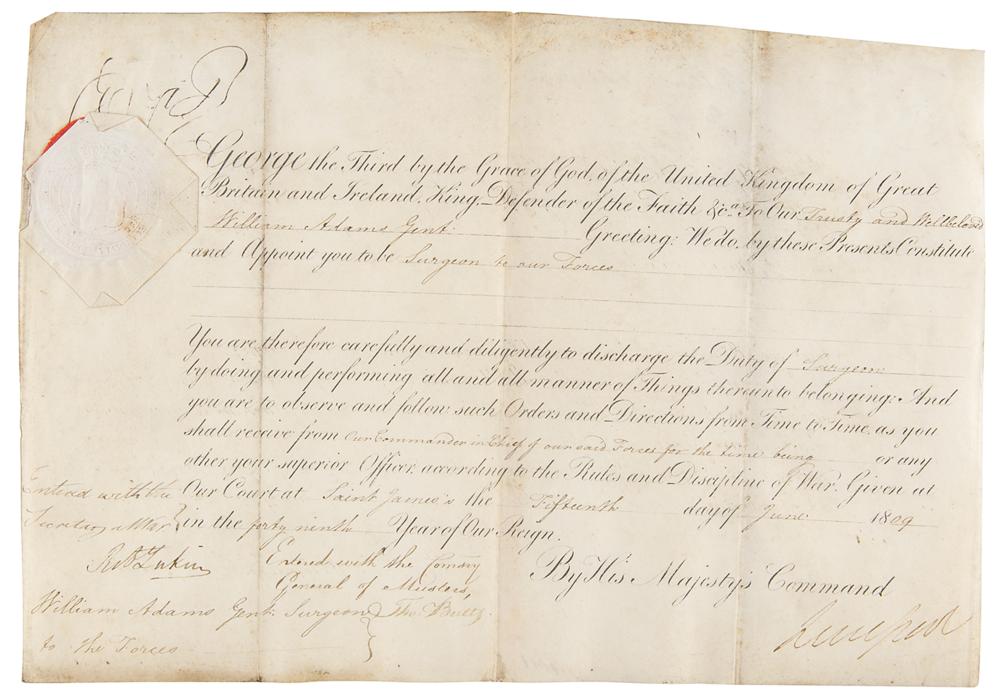 George R
George the Third by the Grace of God, of the United Kingdom of Great
Britain and Ireland, King, Defender of the Faith &c.a To Our Trusty and Wellbeloved
William Adams Gent. Greeting: We do, by these Presents Constitute
and Appoint you to be Surgeon to our Forces
You are therefore carefully and diligently to discharge the Duty of Surgeon
by doing and performing all and all manner of Things thereunto belonging: And
you are to observe and follow such Orders and Directions from Time to Time, as you
shall receive from Our Commander in Chief of our said Forces for the time being or any
other your superior Officer, according to the Rules and Discipline of War. Given at
Our Court at Saint James's the Fifteenth day of June 1809
in the forty ninth Year of Our Reign.
By His Majesty's Command
Entered with the
Secretary at War
Entered with the Comsary
General of Musters,
William Adams Gent. Surgeon
to the Forces